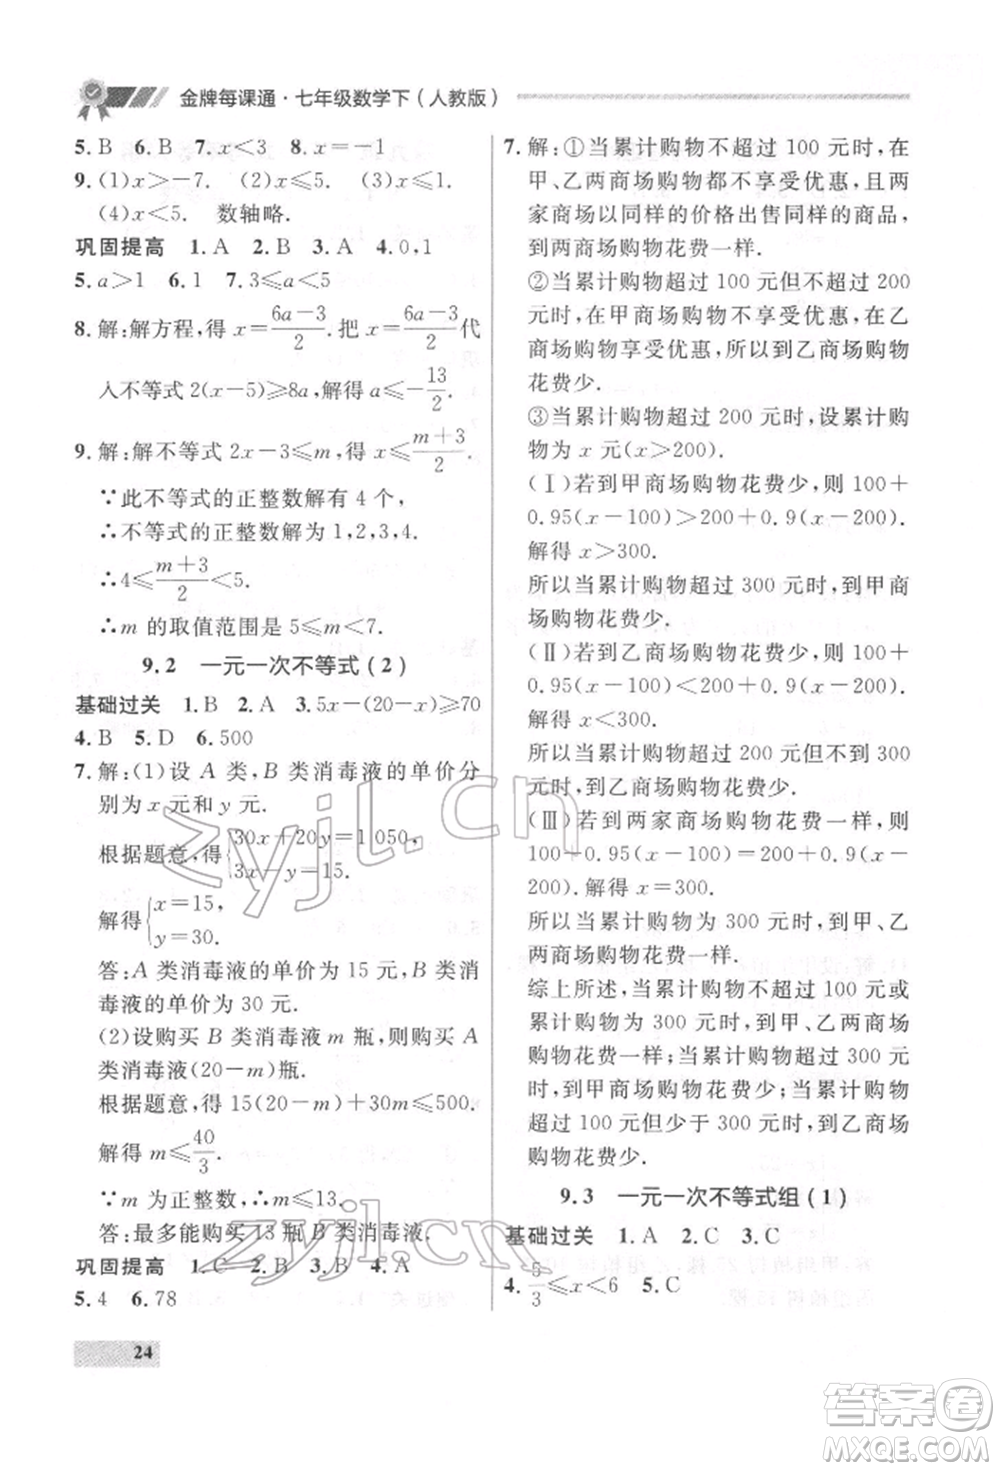 金牌每课通·七年级数学下（人教版）
5. B 6. B 7. x<3 8. x=-1
9. (1)x>-7. (2)x≤5. (3)x<4.
(4)x<5. 数轴略.
巩固提高 1. A 2. B 3. A 4. 0,1
5. a>1 6. 1 7. 3≤a<5
8. 解:解方程,得 x=(6a-3)/2.把 x=(6a-3)/2 代
入不等式 2(x-5)≥8a,解得 a≤-13/2.
9. 解:解不等式 2x-3≤m,得 x≤(m+3)/2.
∵此不等式的正整数解有 4 个,
∴不等式的正整数解为 1,2,3,4.
∴4≤(m+3)/2<5.
∴m 的取值范围是 5≤m<7.
9.2 一元一次不等式(2)
基础过关 1. B 2. A 3. 5x-(20-x)≥70
4. B 5. D 6. 500
7. 解:(1)设 A 类、B 类消毒液的单价分
别为 x 元和 y 元.
根据题意,得{30x+20y=1 050,
3x-y=15.
解得{x=15,
y=30.
答:A 类消毒液的单价为 15 元,B 类消
毒液的单价为 30 元.
(2)设购买 B 类消毒液 m 瓶,则购买 A
类消毒液(20-m)瓶.
根据题意,得 15(20-m)+30m≤500.
解得 m≤40/3.
∵m 为正整数,∴m≤13.
答:最多能购买 13 瓶 B 类消毒液.
巩固提高 1. C 2. B 3. B 4. A
5. 4 6. 78
24
7. 解:①当累计购物不超过 100 元时,在
甲、乙两商场购物都不享受优惠,且两
家商场以同样的价格出售同样的商品,
到两商场购物花费一样.
②当累计购物超过 100 元但不超过 200
元时,在甲商场购物不享受优惠,在乙
商场购物享受优惠,所以到乙商场购物
花费少.
③当累计购物超过 200 元时,设累计购
物为 x 元(x>200).
(Ⅰ)若到甲商场购物花费少,则 100+
0.95(x-100)>200+0.9(x-200).
解得 x>300.
所以当累计购物超过 300 元时,到甲商
场购物花费少.
(Ⅱ)若到乙商场购物花费少,则 100+
0.95(x-100)<200+0.9(x-200).
解得 x<300.
所以当累计购物超过 200 元但不到 300
元时,到乙商场购物花费少.
(Ⅲ)若到两家商场购物花费一样,则
100+0.95(x-100)=200+0.9(x-
200).解得 x=300.
所以当累计购物为 300 元时,到甲、乙
两商场购物花费一样.
综上所述,当累计购物不超过 100 元或
累计购物为 300 元时,到甲、乙两商场
购物花费一样;当累计购物超过 300 元
时,到甲商场购物花费少;当累计购物
超过 100 元但少于 300 元时,到乙商场
购物花费少.
9.3 一元一次不等式组(1)
基础过关 1. A 2. C 3. C
4. 5/3≤x<6 5. C
zyjl.cn
zyjl.cn
答案圈
MXQE.COM